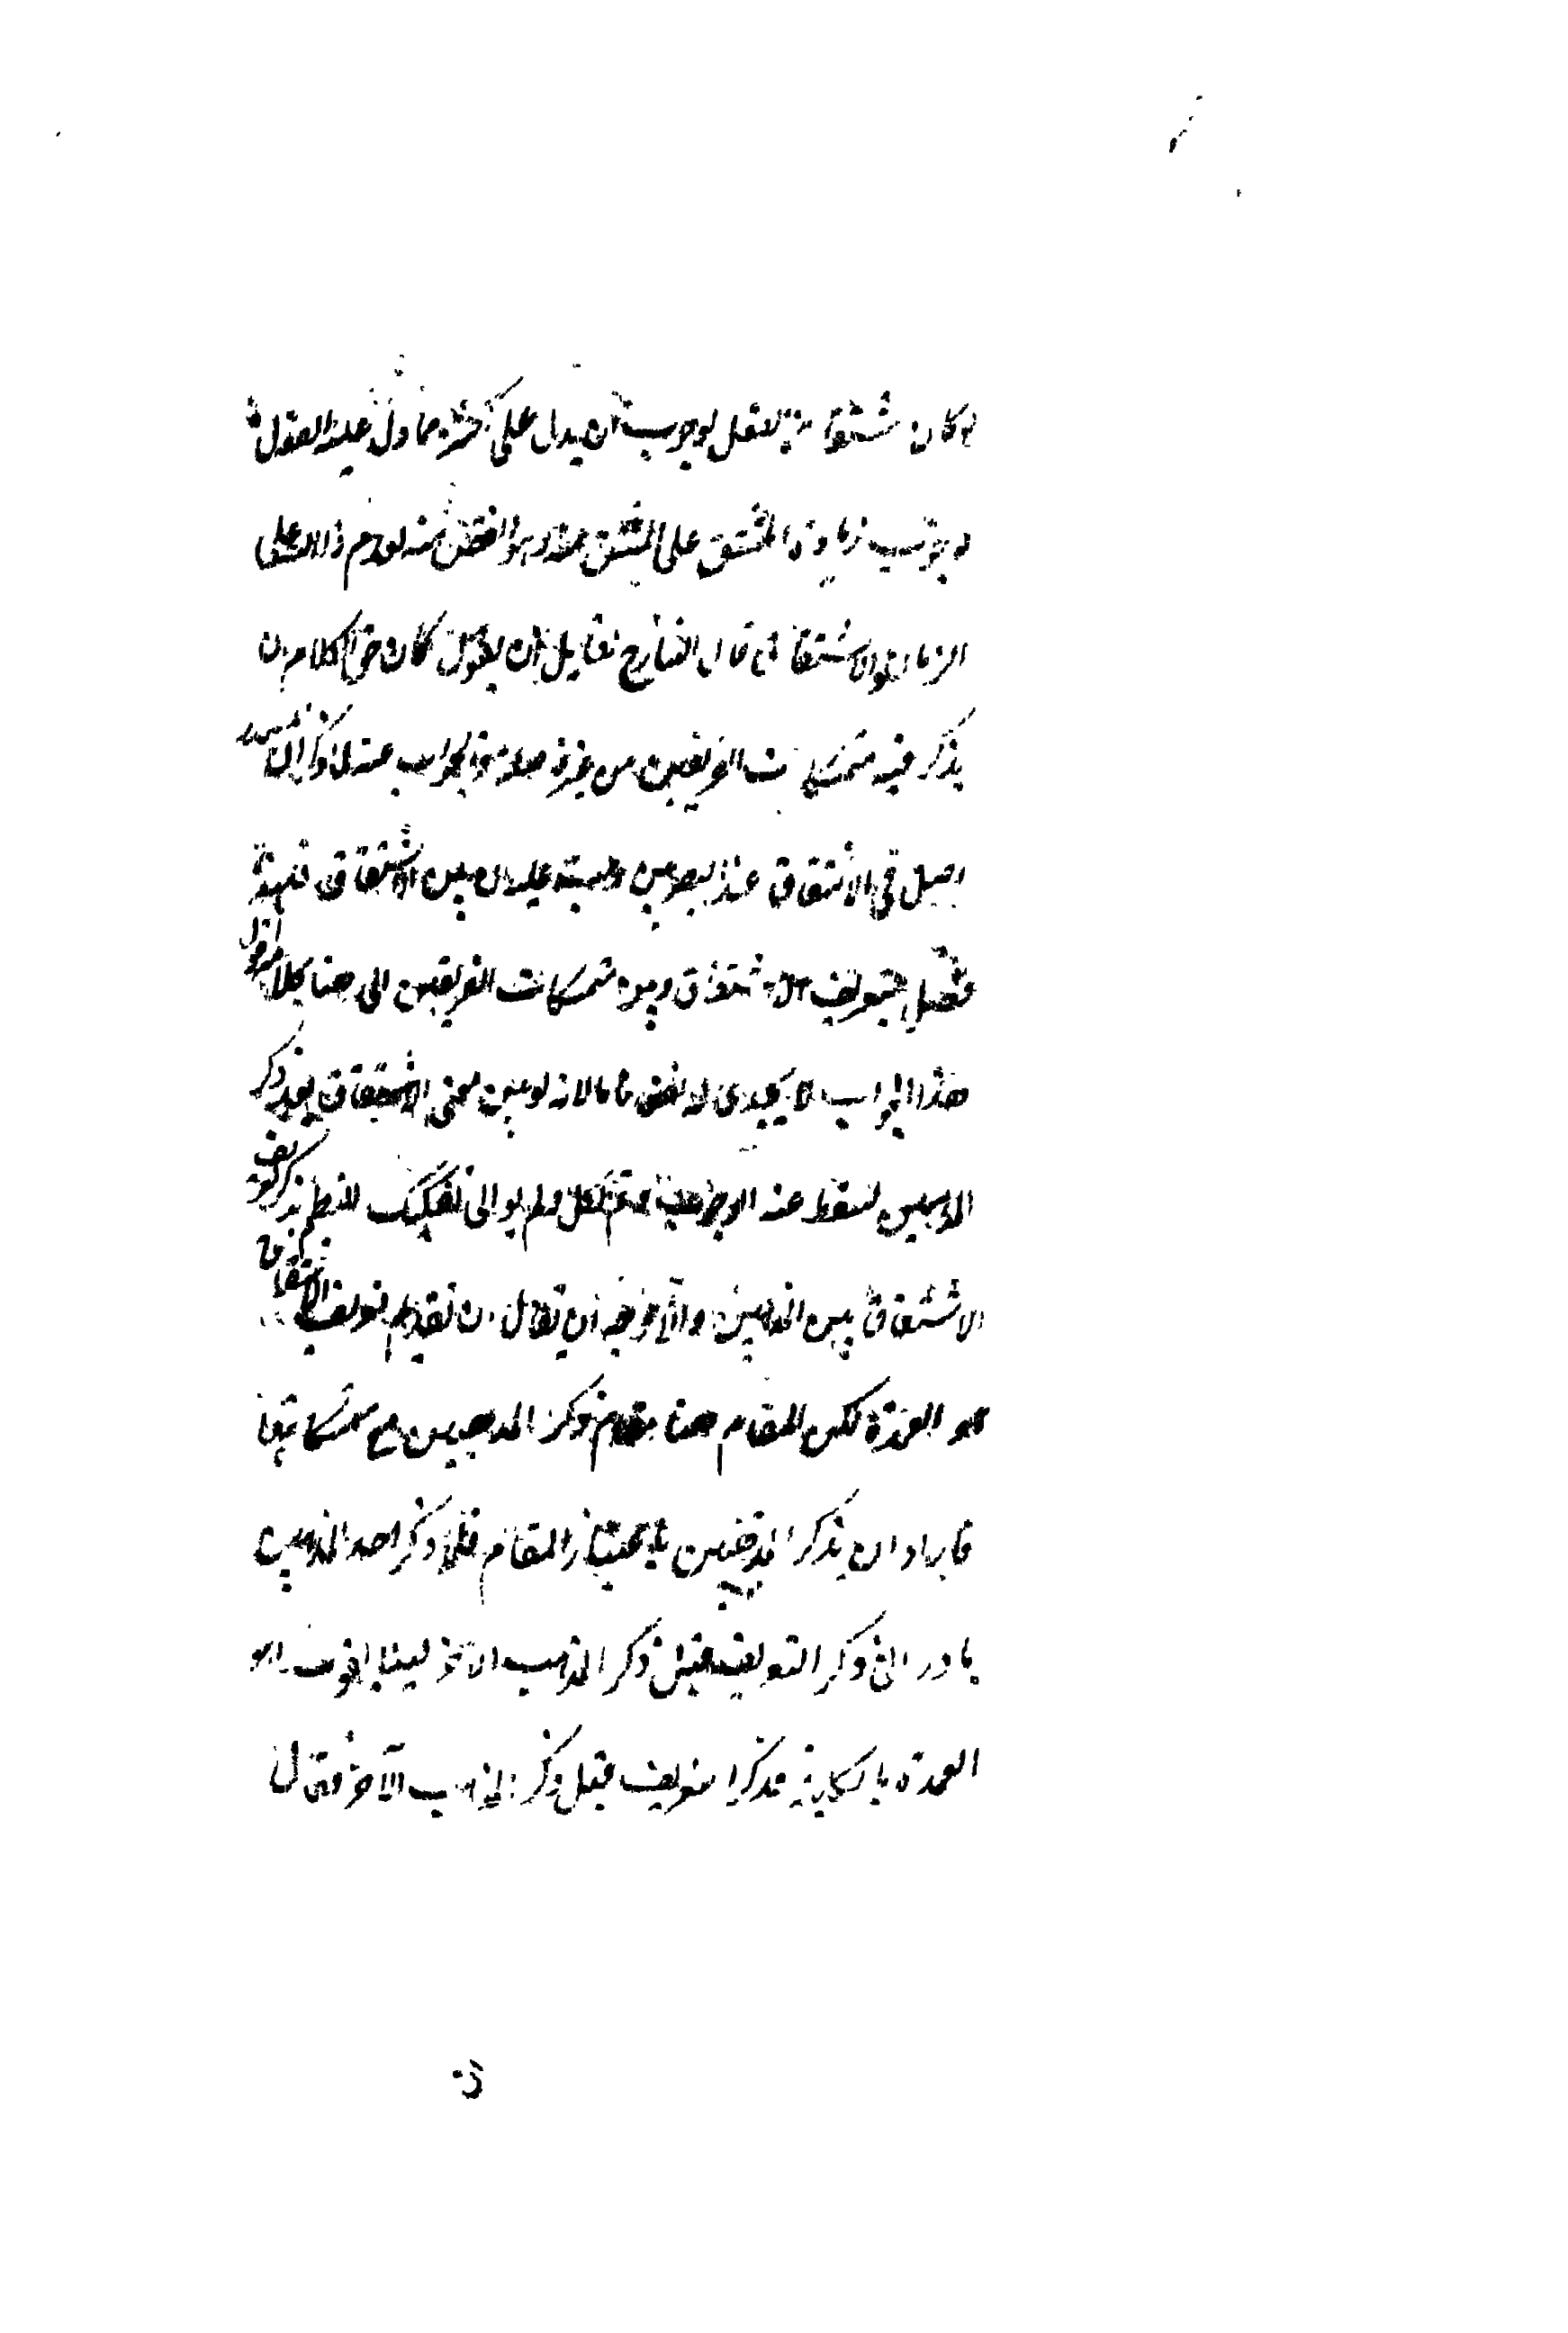 لو كان مشتقا من الفعل لوجب ان يدل على اكثر مما دل عليه الفعل
لوجوب زيادة المشتق على المشتق منه وهو انقص منه لعدم دلالته على
الزمان والاشتقاق قال الشارح لقايل ان يقول كان حق الكلام ان
يذكر فيه متمسكات الفريقين من غير فاصلة والجواب عنه لما ذكر ان المصدر
اصل في الاشتقاق عند البصريين وجب عليه ان يبين الاشتقاق فلهذا
فصل بتعريف الاشتقاق وبين متمسكات الفريقين الى هنا كلامه اقول
هذا الجواب لا يجدى نفعا لانه لو بين معنى الاشتقاق بعد ذكر
المذهبين لسقط عنه الواجب عليه ولم يؤد الى تفكيك النظم بذكر تعريف
الاشتقاق بين المذهبين والاوجه ان يقال ان تقديم تعريف الاشتقاق
هو العمدة لكن المقام هنا مقام ذكر المذهبين مع متمسكاتهما
فاراد ان يذكر المذهبين المقام فلما ذكر احد المذهبين
بادر الى ذكر التعريف قبل ذكر المذهب الاخر لئلا يفوت
العمدة بالكلية فذكر التعريف قبل ذكر المذهب الآخر فقال